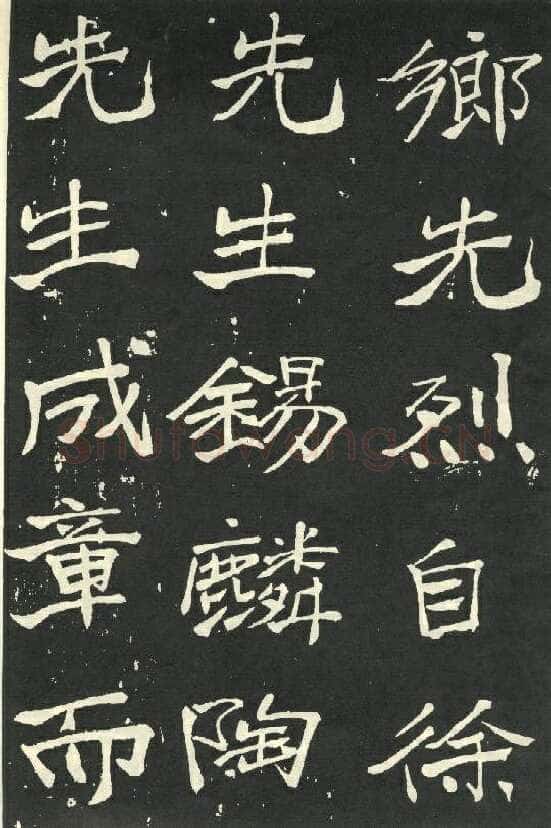 鄉先烈自徐
先生錫麟陶
先生成章而
shufawang.CN